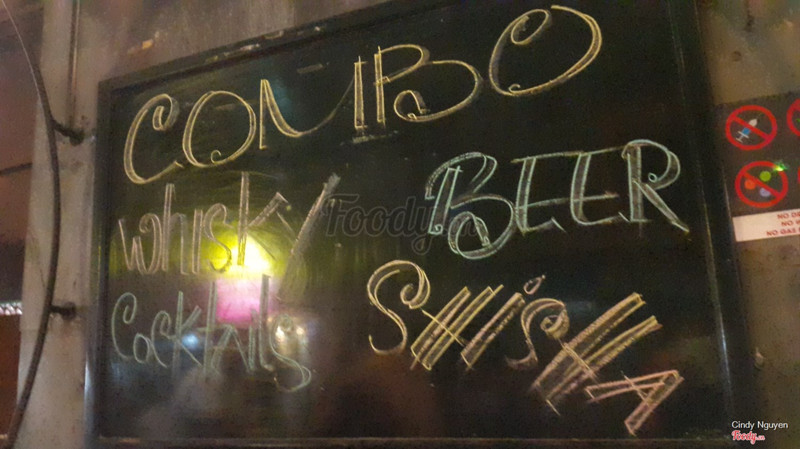 COMBO
Whisky BEER
Cocktails SHiSHA
Foody.vn
NO W
NO GAS
Cindy Nguyen
Foody.vn